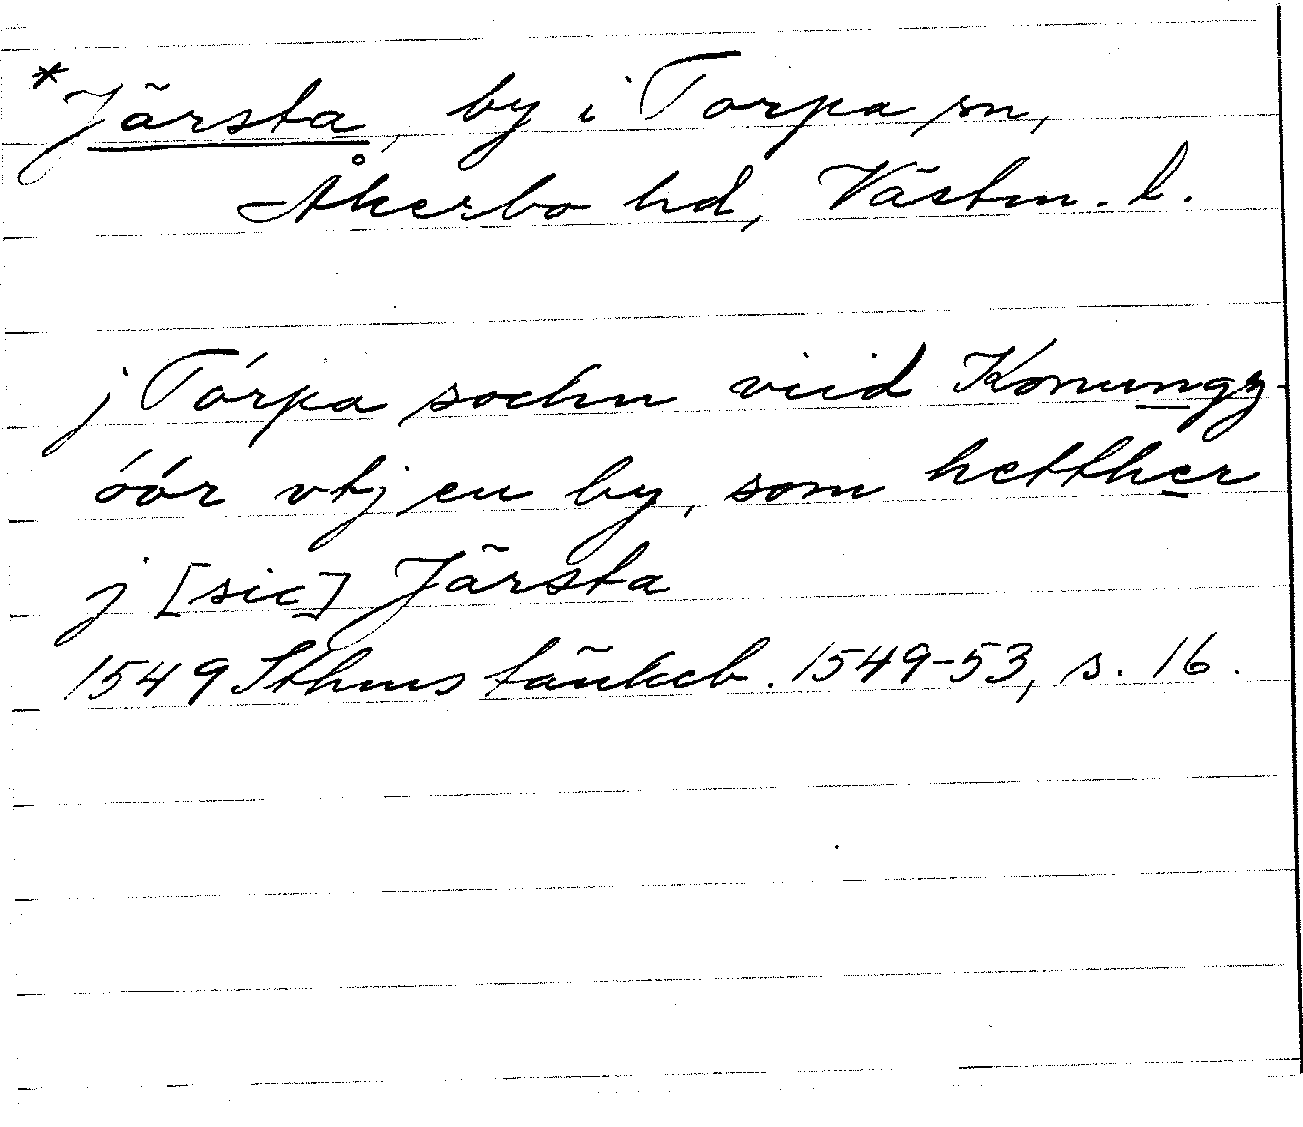 *Järsta, by i Torpa sn,
Åkerbo hd, Västm. l.
j Tórpa sochn viid Konungz-
óór vtj en by, som hetther
j [sic] Järsta
1549 Sthms tänkeb. 1549-53, s. 16.